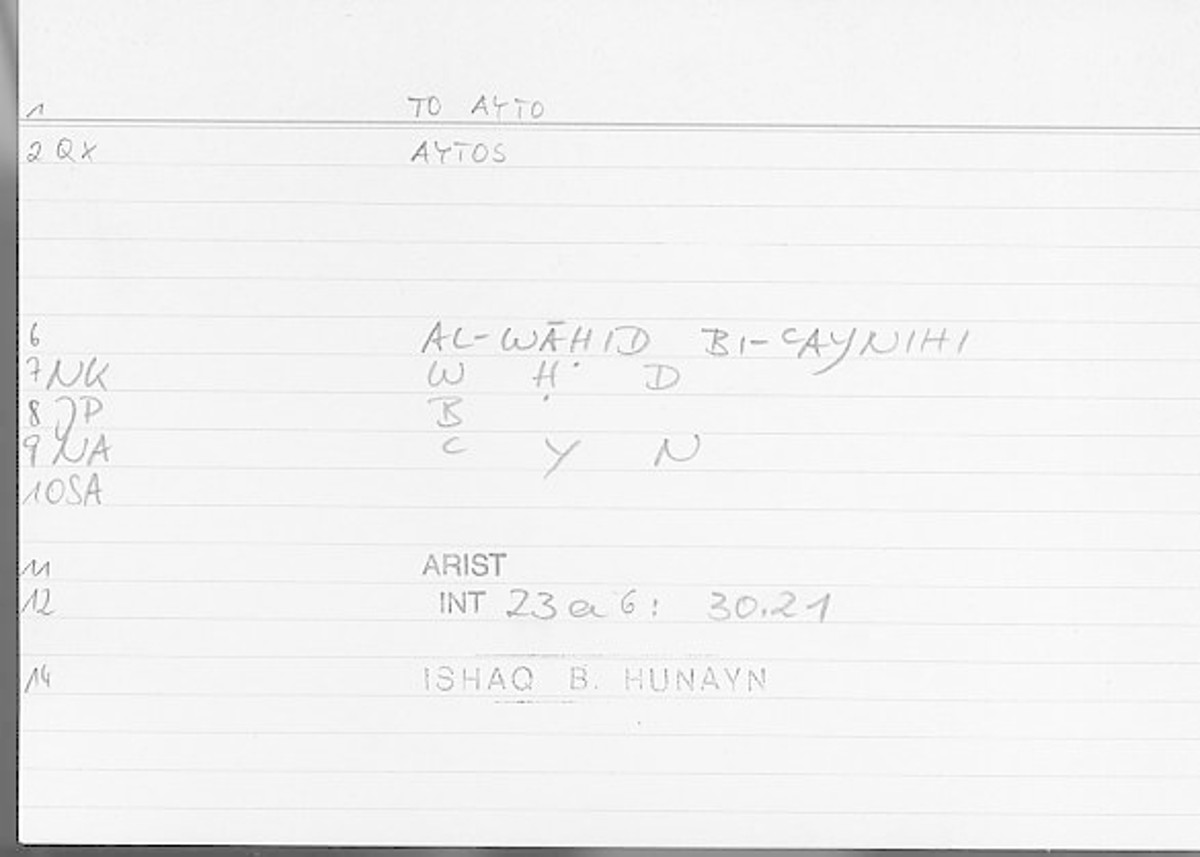 1 TO AYTO
2 QX AYTOS
6 AL-WĀHID BI-ʿAYNIHI
7 NK W Ḥ D
8 JP B
9 NA ʿ Y N
10 SA
11 ARIST
12 INT 23 a 6 : 30.21
14 ISHAQ B. HUNAYN